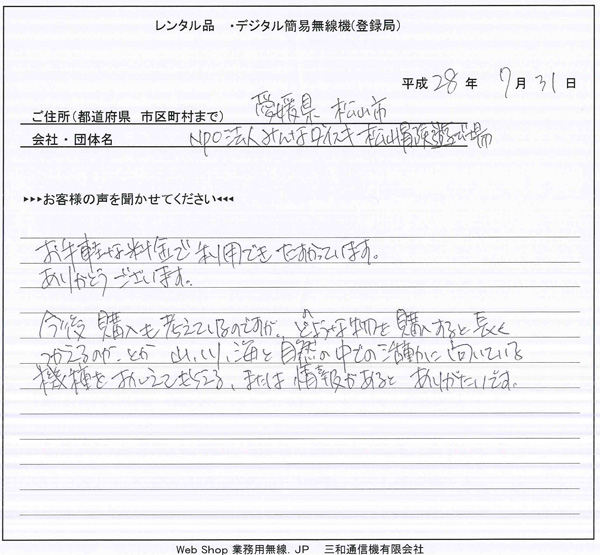 レンタル品 ・デジタル簡易無線機(登録局)
平成 28 年 7 月 31 日
ご住所(都道府県 市区町村まで) 愛媛県 松山市
会社・団体名 NPO法人みんなダイスキ松山冒険遊び場
▸▸▸お客様の声を聞かせてください◂◂◂
お手軽な料金で利用できたすかっています。
ありがとうございます。
今後 購入も考えているのですが、どのような物を購入すると長く
つかえるのか、とか 山、川、海と自然の中での活動に向いている
機種をおしえてもらえる、または情報があると ありがたいです。
Web Shop 業務用無線.JP 三和通信機有限会社